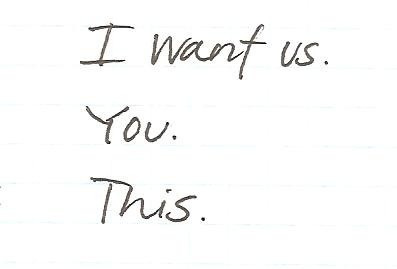 I want us.
You.
This.